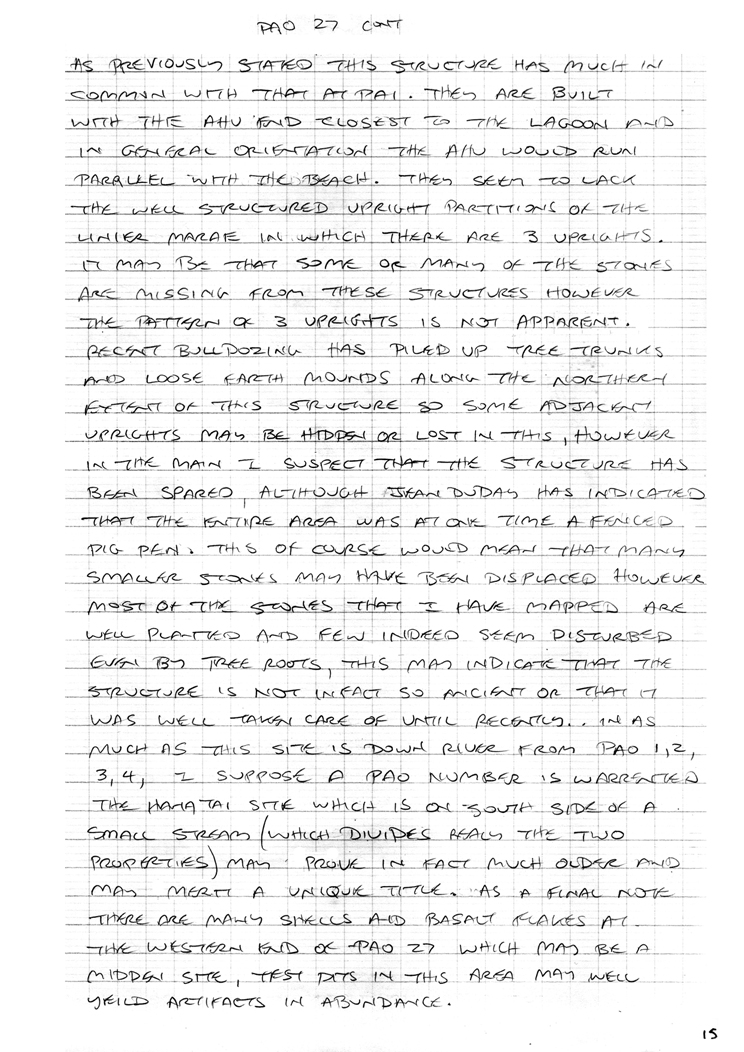 PAO 27 CONT
AS PREVIOUSLY STATED THIS STRUCTURE HAS MUCH IN
COMMON WITH THAT AT PAI. THEY ARE BUILT
WITH THE AHU END CLOSEST TO THE LAGOON AND
IN GENERAL ORIENTATION THE AHU WOULD RUN
PARALLEL WITH THE BEACH. THEY SEEM TO LACK
THE WELL STRUCTURED UPRIGHT PARTITIONS OF THE
LINIER MARAE IN WHICH THERE ARE 3 UPRIGHTS.
IT MAY BE THAT SOME OR MANY OF THE STONES
ARE MISSING FROM THESE STRUCTURES HOWEVER
THE PATTERN OF 3 UPRIGHTS IS NOT APPARENT.
RECENT BULLDOZING HAS PILED UP TREE TRUNKS
AND LOOSE EARTH MOUNDS ALONG THE NORTHERN
EXTENT OF THIS STRUCTURE SO SOME ADJACENT
UPRIGHTS MAY BE HIDDEN OR LOST IN THIS, HOWEVER
IN THE MAIN I SUSPECT THAT THE STRUCTURE HAS
BEEN SPARED, ALTHOUGH JEAN DUDAY HAS INDICATED
THAT THE ENTIRE AREA WAS AT ONE TIME A FENCED
PIG PEN. THIS OF COURSE WOULD MEAN THAT MANY
SMALLER STONES MAY HAVE BEEN DISPLACED HOWEVER
MOST OF THE STONES THAT I HAVE MAPPED ARE
WELL PLANTED AND FEW INDEED SEEM DISTURBED
EVEN BY TREE ROOTS, THIS MAY INDICATE THAT THE
STRUCTURE IS NOT INFACT SO ANCIENT OR THAT IT
WAS WELL TAKEN CARE OF UNTIL RECENTLY.. IN AS
MUCH AS THIS SITE IS DOWN RIVER FROM PAO 1,2,
3,4, I SUPPOSE A PAO NUMBER IS WARRENTED
THE HAMATAI SITE WHICH IS ON SOUTH SIDE OF A
SMALL STREAM (WHICH DIVIDES REALY THE TWO
PROPERTIES) MAY PROVE IN FACT MUCH OLDER AND
MAY MERIT A UNIQUE TITLE. AS A FINAL NOTE
THERE ARE MANY SHELLS AND BASALT FLAKES AT
THE WESTERN END OF PAO 27 WHICH MAY BE A
MIDDEN SITE, TEST PITS IN THIS AREA MAY WELL
YEILD ARTIFACTS IN ABUNDANCE.
15